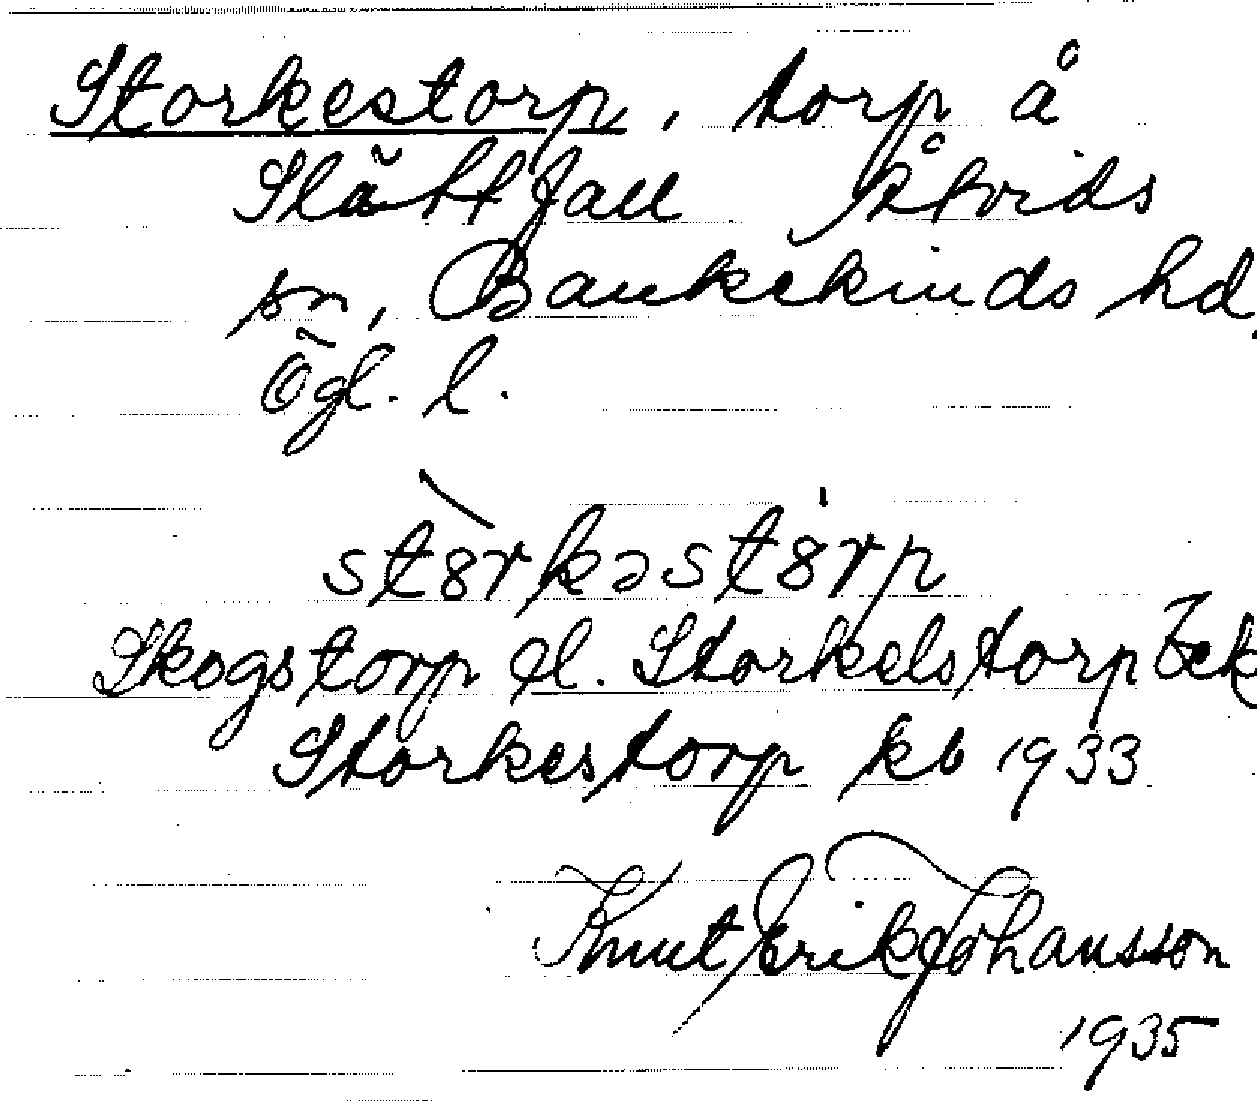 Storkestorp, torp å
Slättfall Åtvids
sn, Bankekinds hd.
Ögl. l.
stɞrkəstɞrp
Skogstorp el. Storkelstorp Eek
Storkestorp kb 1933
Knut Erik Johansson
1935